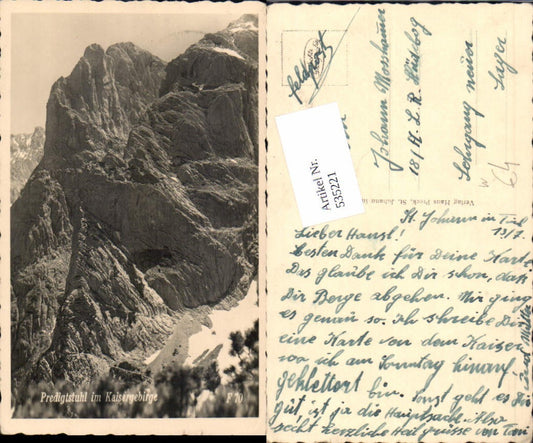 Predigtstuhl im Kaisergebirge
F 70
Feldpost
Johann
18/A. L. R.
Lehrgang neuer
Lager
Artikel Nr.
535221
W
Verlag Hans Preck, St. Johann in
St. Johann in Tirol
13/7.
Lieber Hansl!
Besten Dank für Deine Karte
Das glaube ich Dir schon, daß
Dir Berge abgehen. Mir ging
es genau so. Ich schreibe Dir
eine Karte von dem Kaiser
wo ich am Sonntag hinauf
geklettert bin. Sonst geht es
gut, ist ja die Hauptsache. Also
herzliche grüsse von